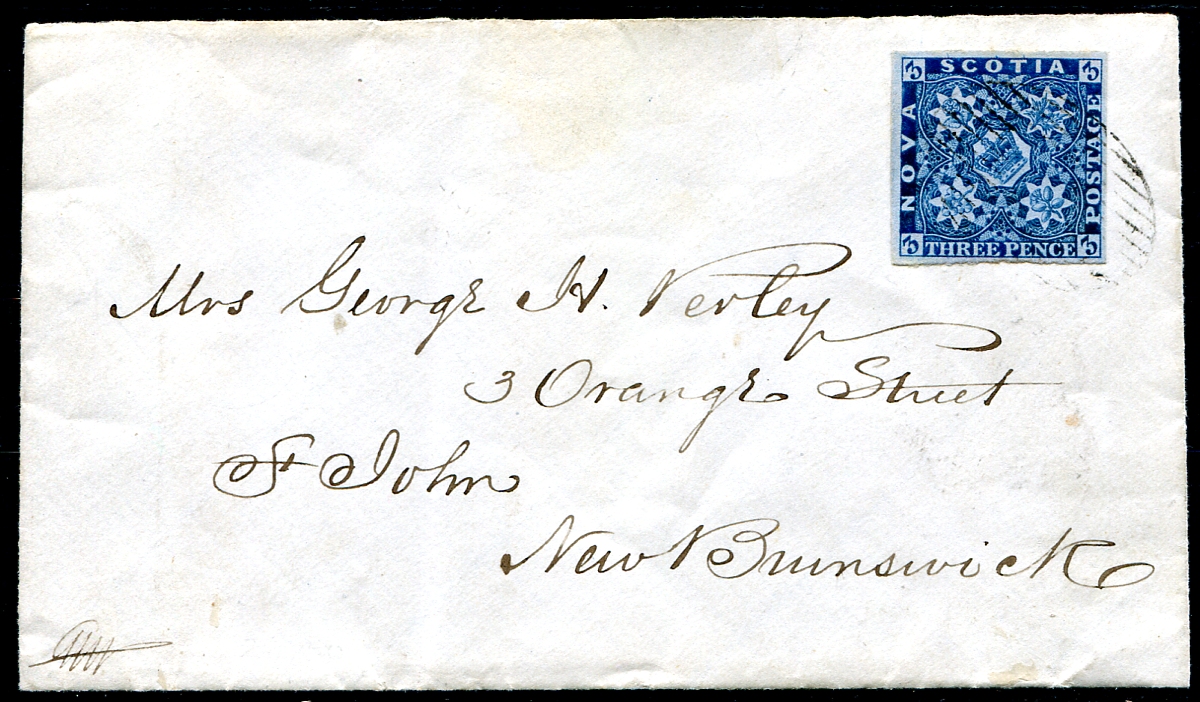 3 SCOTIA 3
NOVA
POSTAGE
3 THREE PENCE 3
Mrs George H. Perley
3 Orange Street
St John
New Brunswick